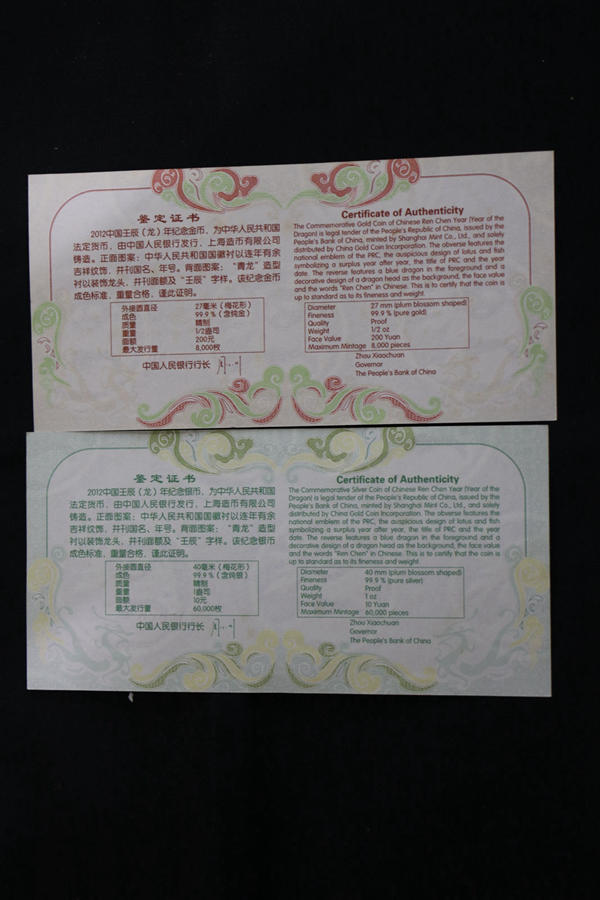 鉴定证书
2012中国壬辰（龙）年纪念金币，为中华人民共和国
法定货币，由中国人民银行发行，上海造币有限公司
铸造。正面图案：中华人民共和国国徽衬以连年有余
吉祥纹饰，并刊国名、年号。背面图案：“青龙”造型
衬以装饰龙头，并刊面额及“壬辰”字样。该纪念金币
成色标准，重量合格，谨此证明。
外接圆直径 27毫米（梅花形）
成色 99.9％（含纯金）
质量 精制
重量 1/2盎司
面额 200元
最大发行量 8,000枚
中国人民银行行长
Certificate of Authenticity
The Commemorative Gold Coin of Chinese Ren Chen Year (Year of the
Dragon) is legal tender of the People's Republic of China, issued by the
People's Bank of China, minted by Shanghai Mint Co., Ltd., and solely
distributed by China Gold Coin Incorporation. The obverse features the
national emblem of the PRC, the auspicious design of lotus and fish
symbolizing a surplus year after year, the title of PRC and the year
date. The reverse features a blue dragon in the foreground and a
decorative design of a dragon head as the background, the face value
and the words "Ren Chen" in Chinese. This is to certify that the coin is
up to standard as to its fineness and weight.
Diameter 27 mm (plum blossom shaped)
Fineness 99.9 % (pure gold)
Quality Proof
Weight 1/2 oz
Face Value 200 Yuan
Maximum Mintage 8,000 pieces
Zhou Xiaochuan
Governor
The People's Bank of China
鉴定证书
2012中国壬辰（龙）年纪念银币，为中华人民共和国
法定货币，由中国人民银行发行，上海造币有限公司
铸造。正面图案：中华人民共和国国徽衬以连年有余
吉祥纹饰，并刊国名、年号。背面图案：“青龙”造型
衬以装饰龙头，并刊面额及“壬辰”字样。该纪念银币
成色标准，重量合格，谨此证明。
外接圆直径 40毫米（梅花形）
成色 99.9％（含纯银）
质量 精制
重量 1盎司
面额 10元
最大发行量 60,000枚
中国人民银行行长
Certificate of Authenticity
The Commemorative Silver Coin of Chinese Ren Chen Year (Year of the
Dragon) is legal tender of the People's Republic of China, issued by the
People's Bank of China, minted by Shanghai Mint Co., Ltd., and solely
distributed by China Gold Coin Incorporation. The obverse features the
national emblem of the PRC, the auspicious design of lotus and fish
symbolizing a surplus year after year, the title of PRC and the year
date. The reverse features a blue dragon in the foreground and a
decorative design of a dragon head as the background, the face value
and the words "Ren Chen" in Chinese. This is to certify that the coin is
up to standard as to its fineness and weight.
Diameter 40 mm (plum blossom shaped)
Fineness 99.9 % (pure silver)
Quality Proof
Weight 1 oz
Face Value 10 Yuan
Maximum Mintage 60,000 pieces
Zhou Xiaochuan
Governor
The People's Bank of China